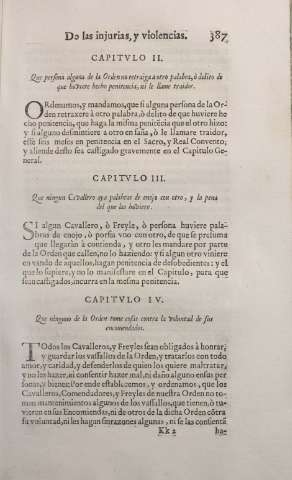 De las injurias, y violencias. 387
CAPITVLO II.
Que persona alguna de la Orden no retraiga a otro palabra, ò delito de
que huviere hecho penitencia, ni le llame traidor.
ORdenamos, y mandamos, que si alguna persona de la Or-
den retraxere à otro palabra, ò delito de que huviere he
cho penitencia, que haga la mesma penitẽcia que el otro hizo:
y si alguno desmintiere a otro en saña, ò le llamare traidor,
esté seis meses en penitencia en el Sacro, y Real Convento;
y aliende desto sea castigado gravemente en el Capitulo Ge-
neral.
CAPITVLO III.
Que ningun Cavallero aya palabras de enojo con otro, y la pena
del que las huviere.
SI algun Cavallero, ò Freyle, ò persona huviere pala-
bras de enojo, ò porfia con otro, de que se presuma
que llegaràn à contienda, y otro les mandare por parte
de la Orden que callen, no lo haziendo; y si algun otro viniere
en vando de aquellos, hagan penitencia de desobedientes: y el
que lo supiere, y no lo manifestare en el Capitulo, para que
sean castigados, incurra en la mesma penitencia.
CAPITVLO IV.
Que ninguno de la Orden tome cosas contra la voluntad de sus
encomendados.
TOdos los Cavalleros, y Freyles sean obligados à honrar,
y guardar los vassallos de la Orden, y tratarlos con todo
amor, y caridad, y defenderlos de quien los quiere maltratar,
y no les hazer, ni consentir hazer mal, ni daño alguno en sus per
sonas, y bienes: Por ende establecemos, y ordenamos, que los
Cavalleros, Comendadores, y Freyles de nuestra Orden no to-
men mantenimientos algunos de los vassallos, que tienen, ò tu-
vieren en sus Encomiendas, ni de otros de la dicha Orden cõtra
su voluntad, ni les hagan sinrazones algunas, ni se las consientã
Kk 2 ha-